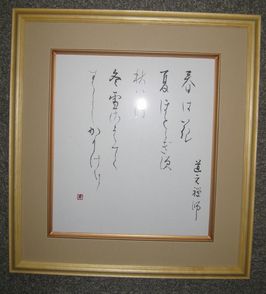 春は花
夏ほとゝぎ須
秋は月
冬雪さえて
すゞしかりけり
道元禅師